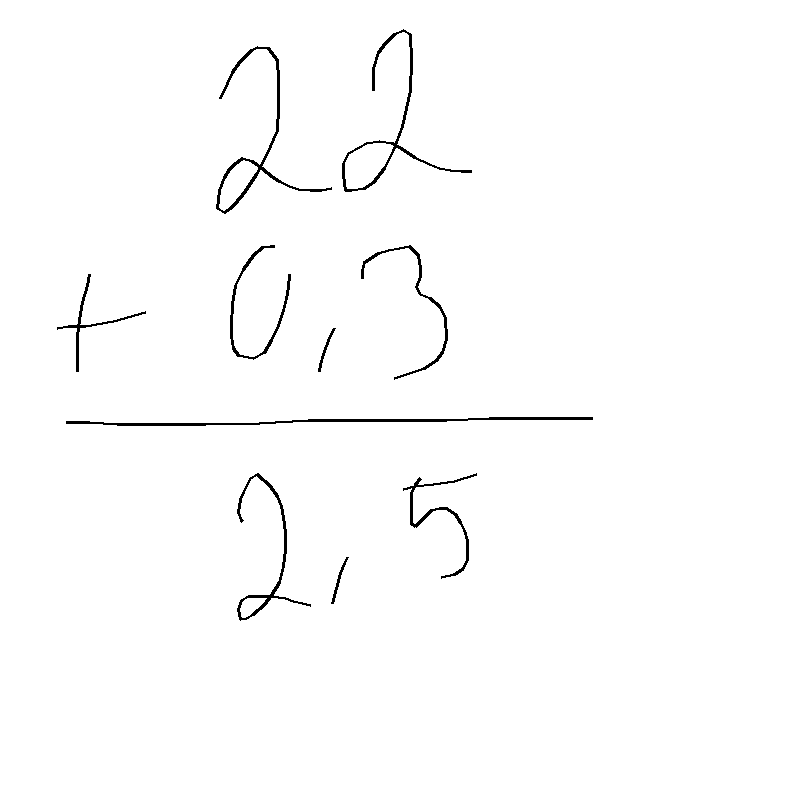 22
+ 0,3
2,5